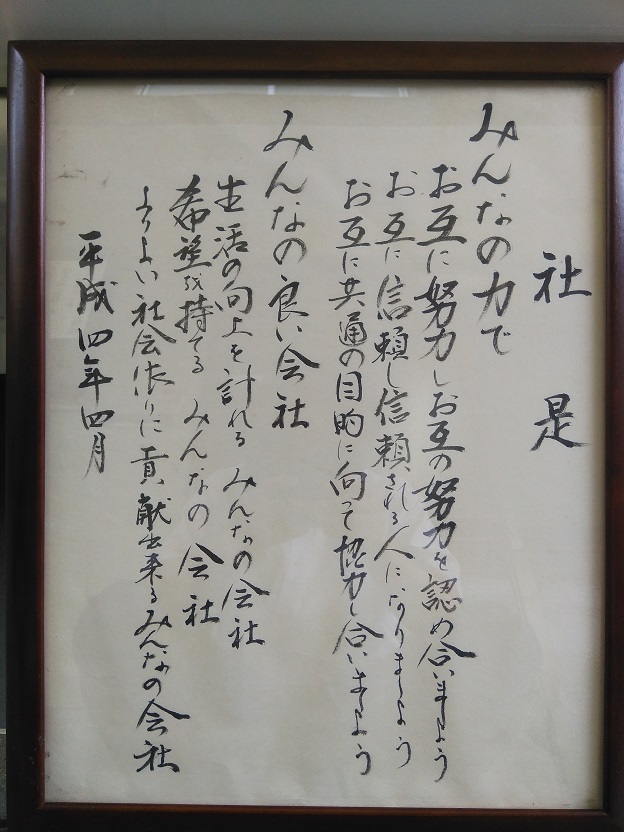 社是
みんなの力で
お互に努力しお互の努力を認め合いましよう
お互に信頼し信頼される人になりましよう
お互に共通の目的に向って協力し合いましよう
みんなの良い会社
生活の向上を計れるみんなの会社
希望を持てるみんなの会社
よりよい社会作りに貢献出来るみんなの会社
平成四年四月